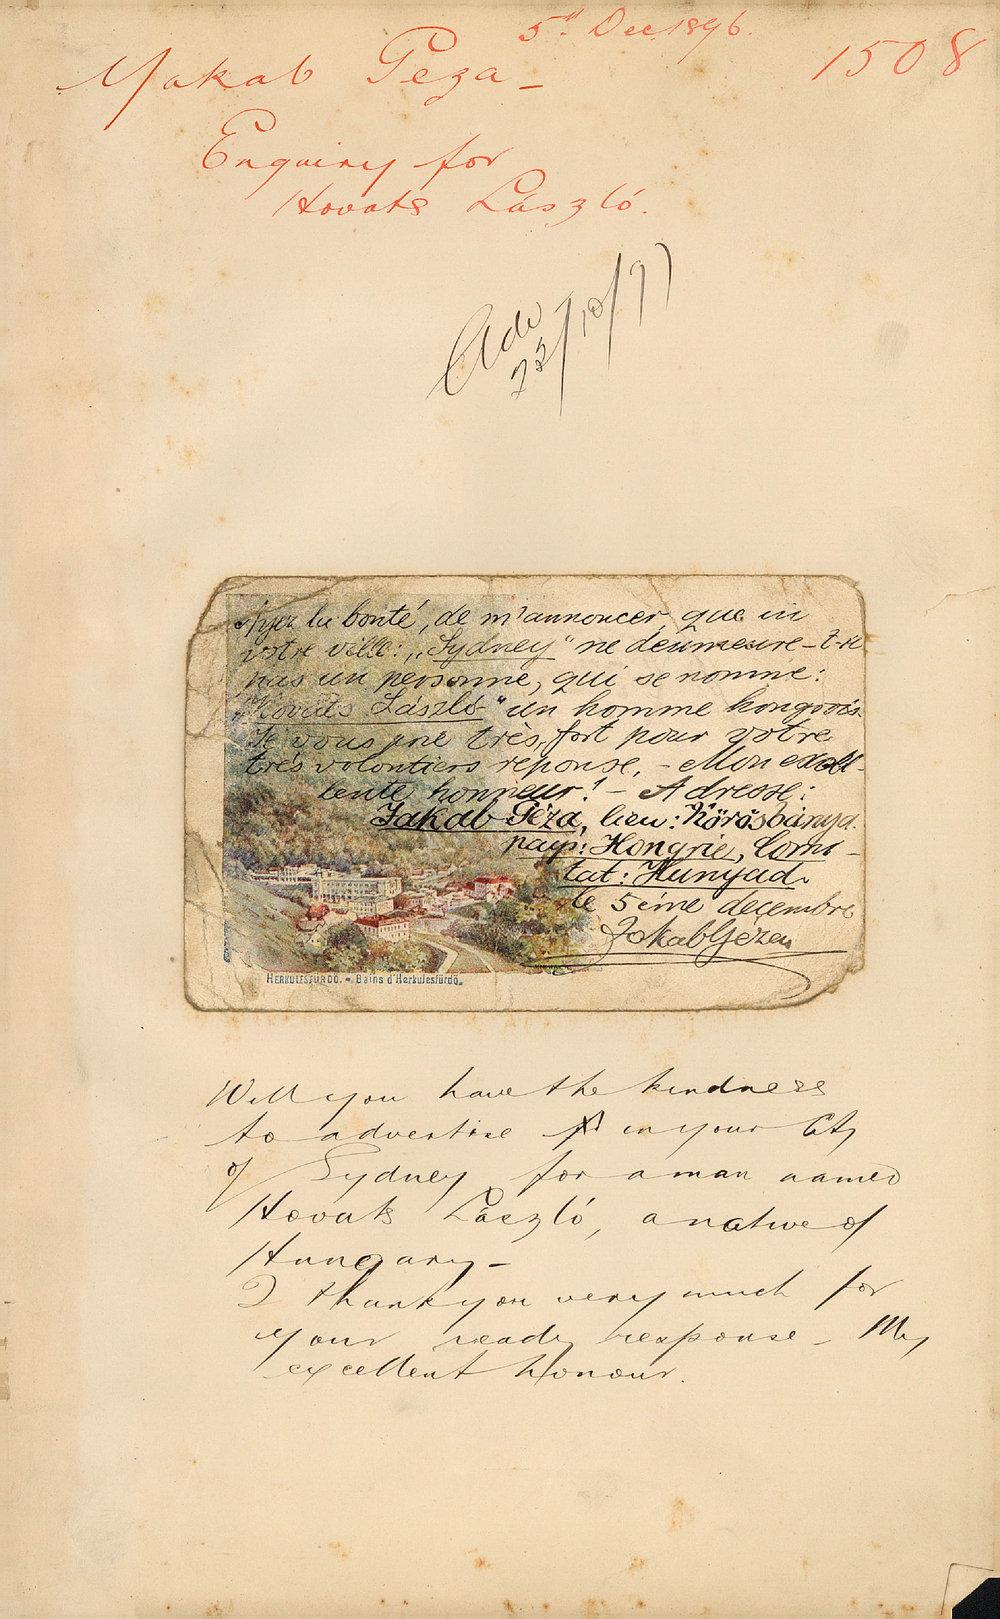 5th Dec. 1896.
1508
Makab Peza -
Enquiry for
Hovats László.
22/10/97
Ayez la bonté, de m'annoncer, que in
votre ville: „Sydney" ne demeure-t-il
pas un personne, qui se nomme:
„Kováts László" un homme hongrois.
Je vous prie très, fort pour votre
très volontiers réponse. - Mon exell-
lente honneur! - Adresse:
Jakab Géza, lieu: Körösbánya.
pays: Hongrie, Comi-
tat: Hunyad.
le 5ème decembre
Jakab Géza
HERKULESFÜRDŐ. - Bains d'Herkulesfürdő.
Will you have the kindness
to advertise in your City
of Sydney for a man named
Hovats László, a native of
Hungary -
I thank you very much for
your ready response - My
excellent honour.